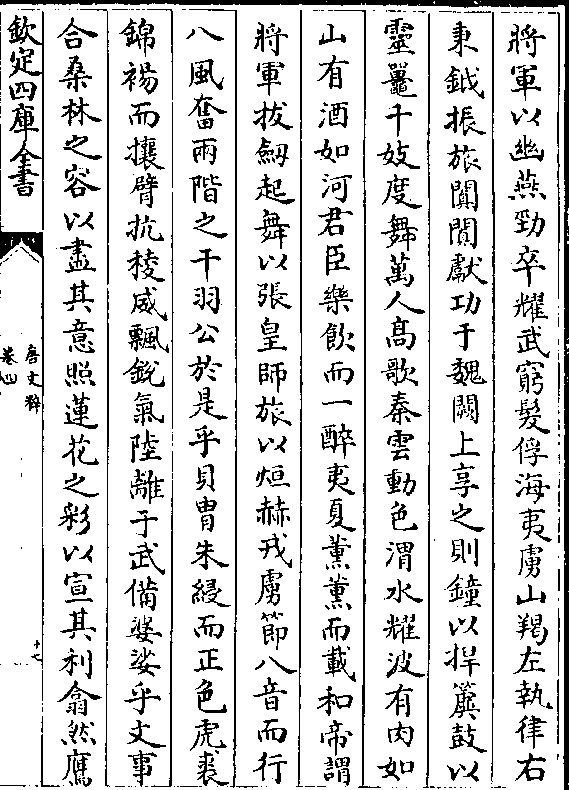 將軍以幽燕勁卒耀武窮髮俘海夷虜山羯左執律右
秉鉞振旅闐闐獻功于魏闕上享之則鐘以捍簴鼓以
靈鼉千妓度舞萬人髙歌秦雲動色渭水耀波有肉如
山有酒如河君臣樂飲而一醉夷夏薰薰而載和帝謂
將軍拔劒起舞以張皇師旅以烜赫戎虜節八音而行
八風奮兩階之干羽公於是乎貝胄朱綅而正色虎裘
錦裼而攘臂抗稜威飄銳氣陸離于武備婆娑乎文事
合桑林之容以盡其意照蓮花之彩以宣其利翕然鷹
欽定四庫全書
唐文粹
卷四
十七